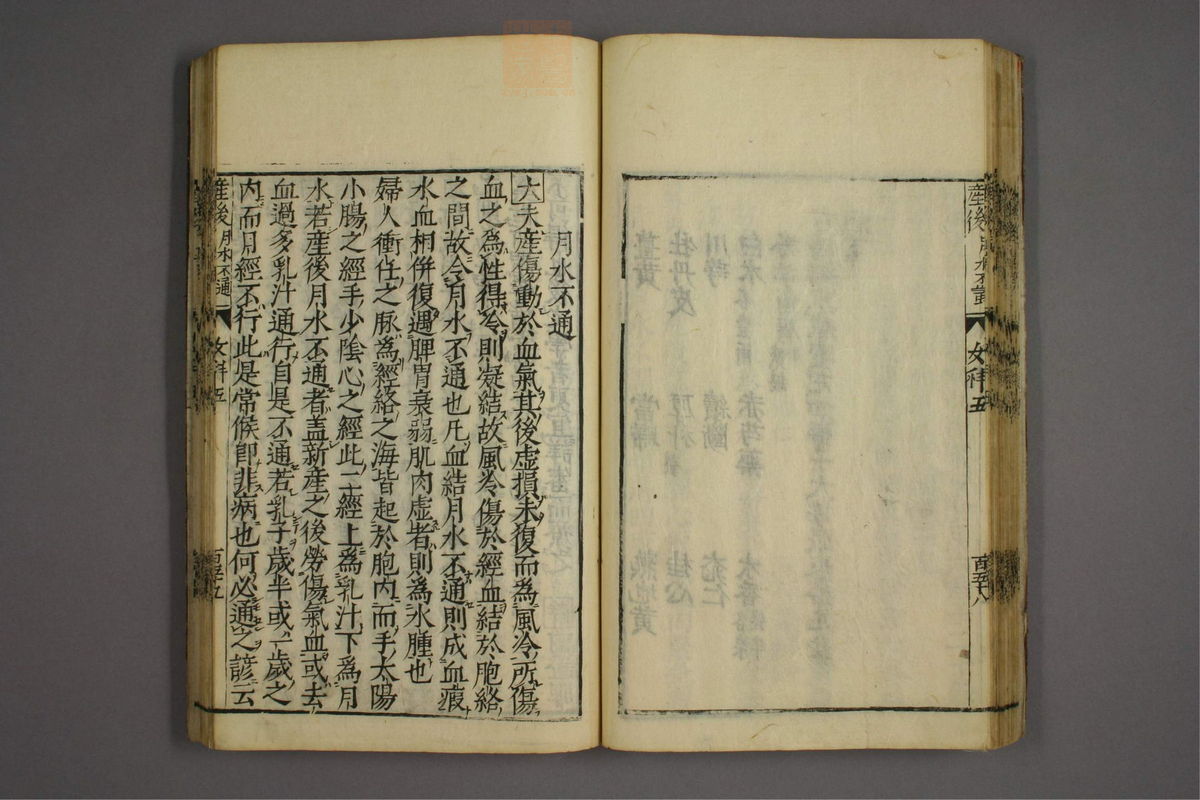 産後
女科五
百五十八
月水不通
大夫産傷動於血氣其後虚損未復而為風冷所傷
血之為性得冷則凝結故風冷傷於經血結於胞絡
之間故令月水不通也凡血結月水不通則成血瘕
水血相併復遇脾胃衰弱肌肉虚者則為水腫也
婦人衝任之脉為經絡之海皆起於胞内而手太陽
小腸之經手少陰心之經此二經上為乳汁下為月
水若産後月水不通者盖新産之後勞傷氣血或去
血過多乳汁通行自是不通若乳子歳半或一歳之
内而月經不行此是常候即非病也何必通之諺云
産後月水不通
女科五